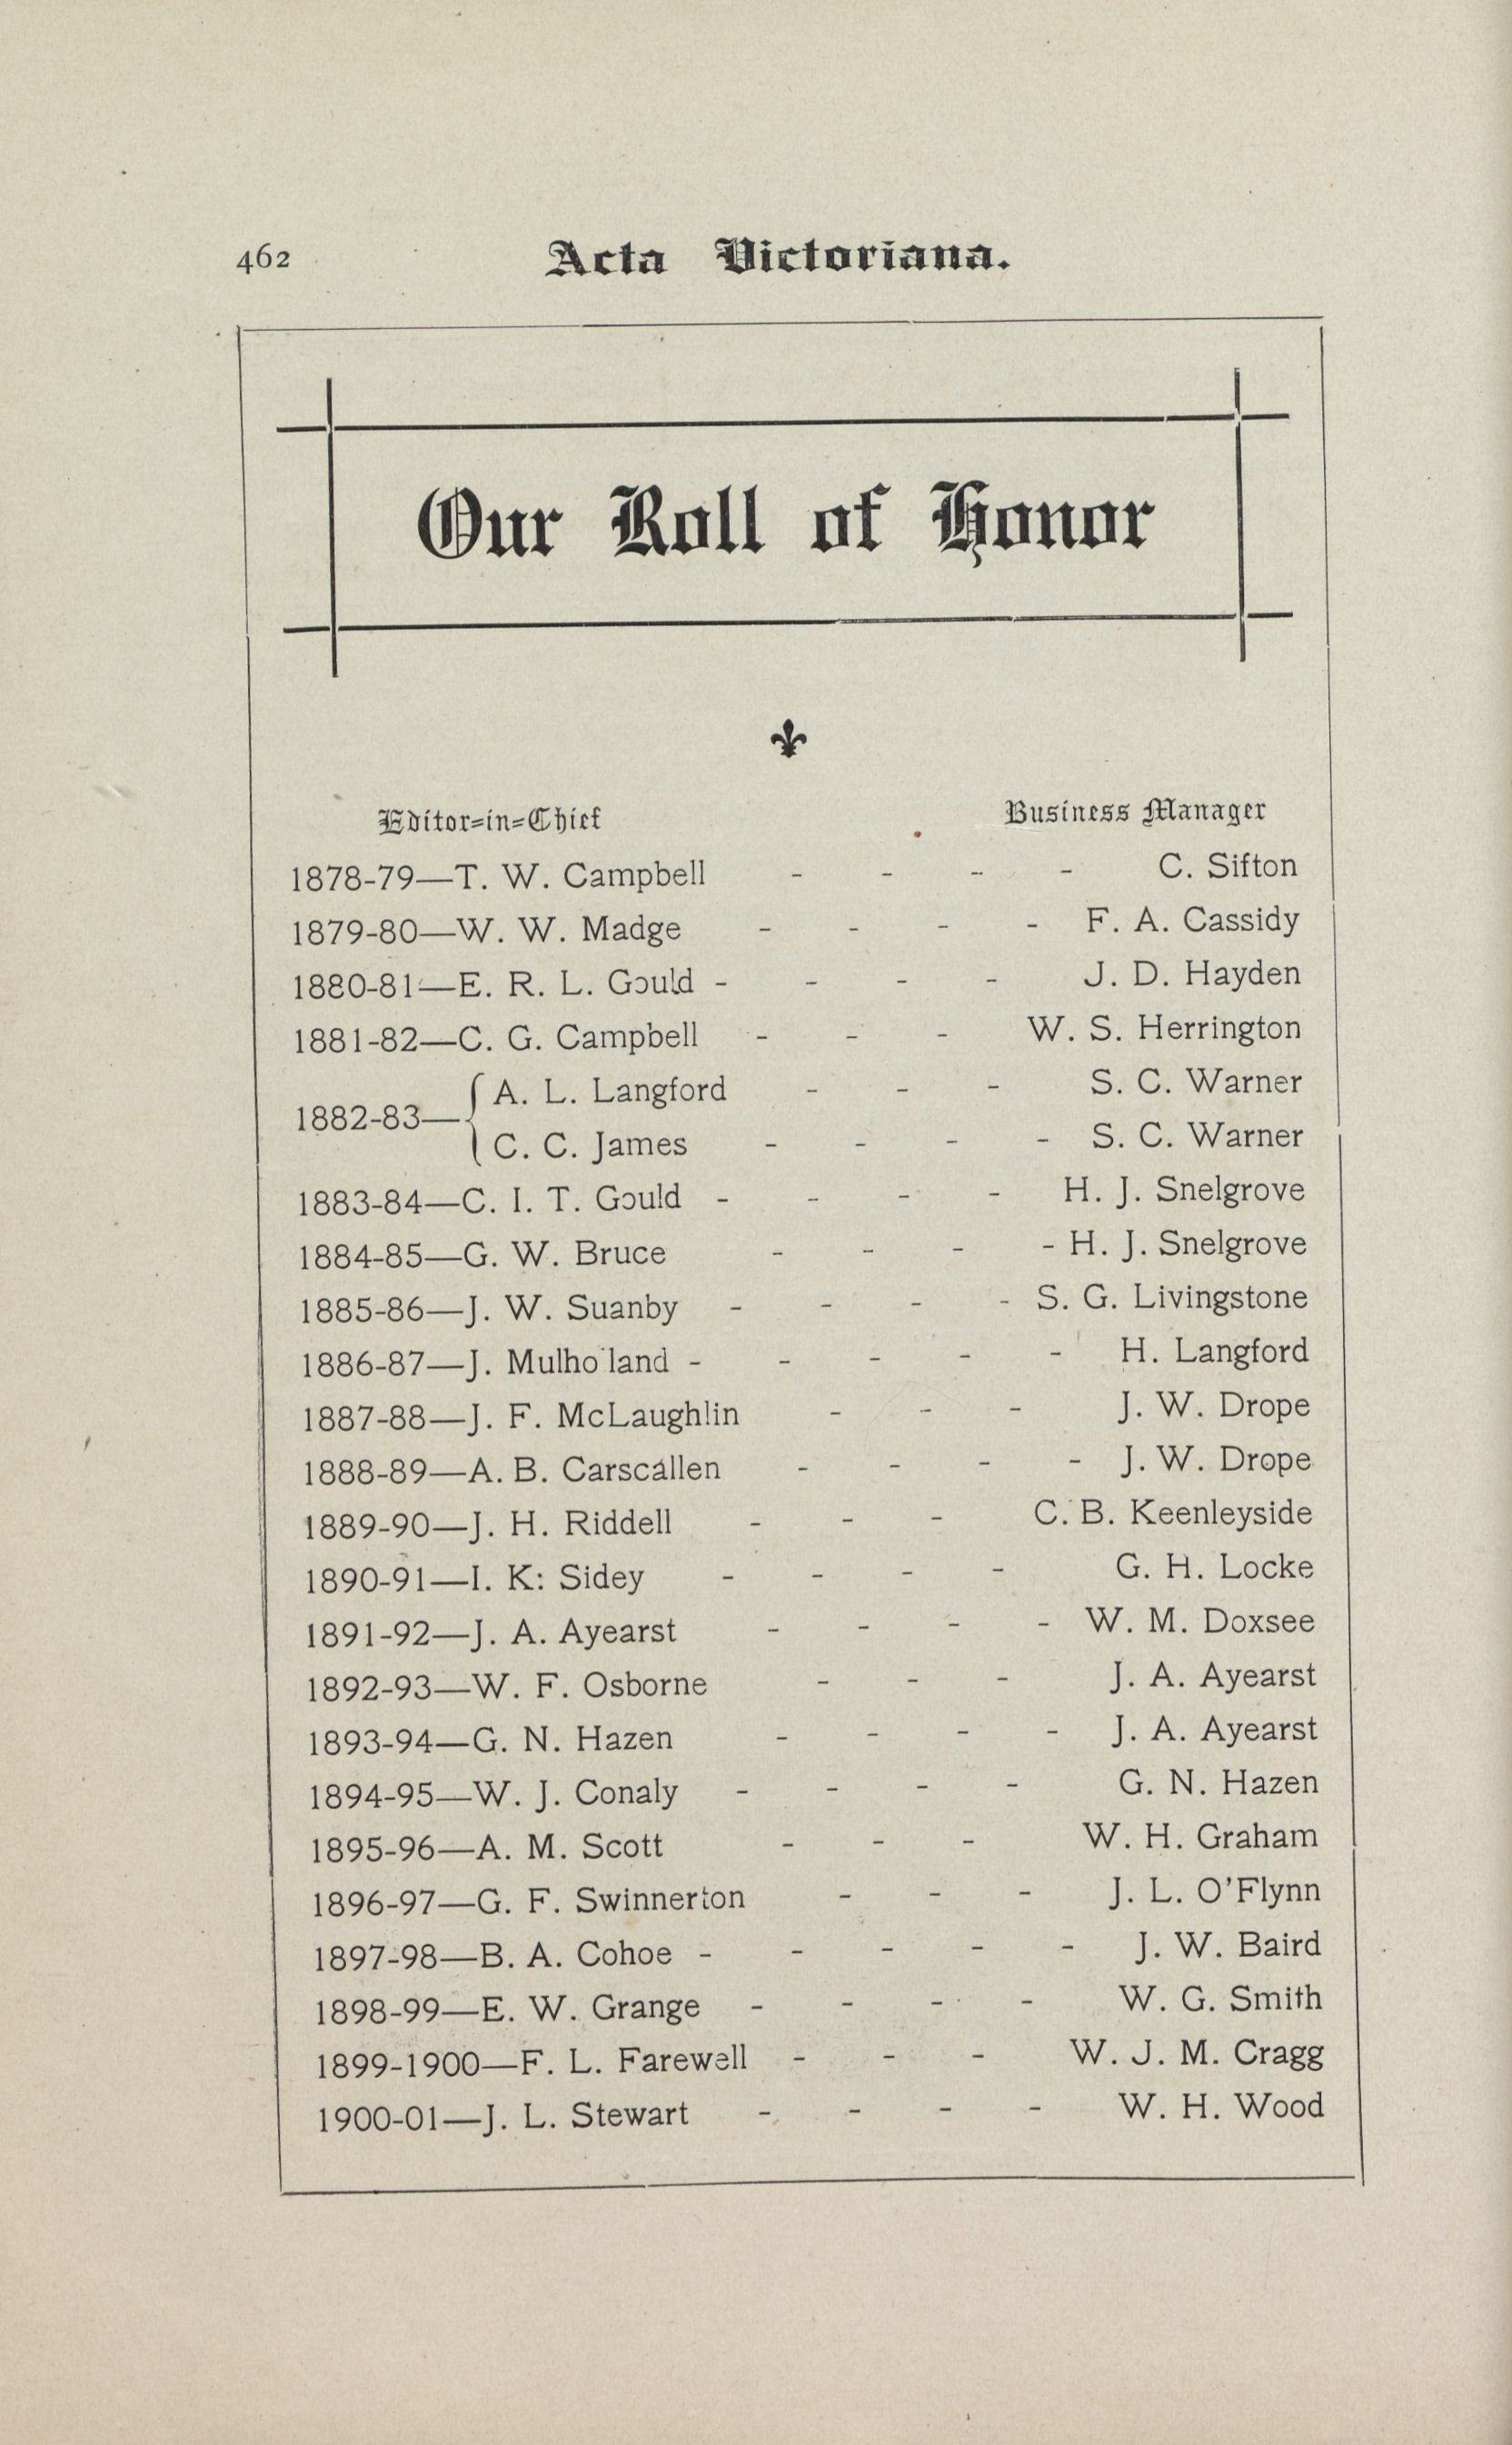 462 Acta Victoriana.
Our Roll of Honor
Editor-in-Chief Business Manager
1878-79—T. W. Campbell - - - - C. Sifton
1879-80—W. W. Madge - - - - F. A. Cassidy
1880-81—E. R. L. Gould - - - - J. D. Hayden
1881-82—C. G. Campbell - - - W. S. Herrington
1882-83—{ A. L. Langford - - - S. C. Warner
C. C. James - - - - S. C. Warner
1883-84—C. I. T. Gould - - - - H. J. Snelgrove
1884-85—G. W. Bruce - - - - H. J. Snelgrove
1885-86—J. W. Suanby - - - - S. G. Livingstone
1886-87—J. Mulho land - - - - - H. Langford
1887-88—J. F. McLaughlin - - - J. W. Drope
1888-89—A. B. Carscallen - - - - J. W. Drope
1889-90—J. H. Riddell - - - C. B. Keenleyside
1890-91—I. K: Sidey - - - - G. H. Locke
1891-92—J. A. Ayearst - - - - W. M. Doxsee
1892-93—W. F. Osborne - - - J. A. Ayearst
1893-94—G. N. Hazen - - - - J. A. Ayearst
1894-95—W. J. Conaly - - - - G. N. Hazen
1895-96—A. M. Scott - - - W. H. Graham
1896-97—G. F. Swinnerton - - - J. L. O'Flynn
1897-98—B. A. Cohoe - - - - - J. W. Baird
1898-99—E. W. Grange - - - - W. G. Smith
1899-1900—F. L. Farewell - - - W. J. M. Cragg
1900-01—J. L. Stewart - - - - W. H. Wood